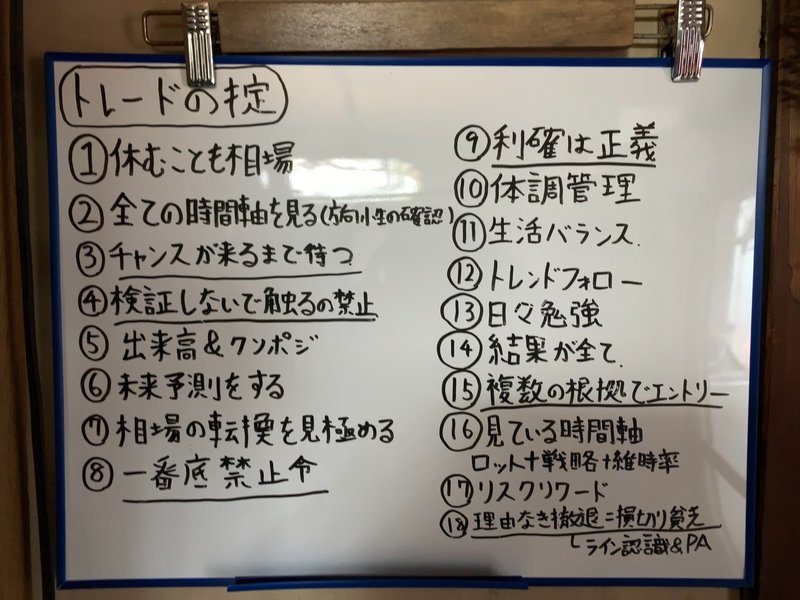 トレードの掟
① 休むことも相場
② 全ての時間軸を見る(方向性の確認)
③ チャンスが来るまで待つ
④ 検証しないで触るの禁止
⑤ 出来高&クソポジ
⑥ 未来予測をする
⑦ 相場の転換を見極める
⑧ 一番底禁止令
⑨ 利確は正義
⑩ 体調管理
⑪ 生活バランス.
⑫ トレンドフォロー
⑬ 日々勉強
⑭ 結果が全て.
⑮ 複数の根拠でエントリー
⑯ 見ている時間軸
ロット+戦略+維時率
⑰ リスクリワード
⑱ 理由なき撤退=損切り貧乏
└ライン認識&PA